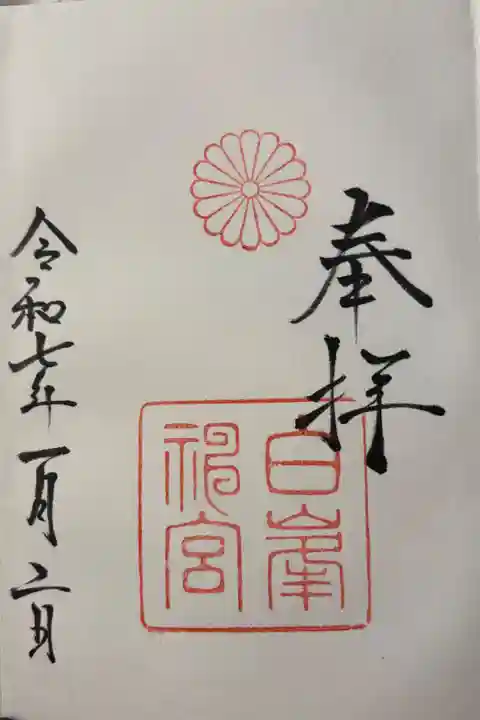 奉拝
白峯
神宮
令和七年一月二日